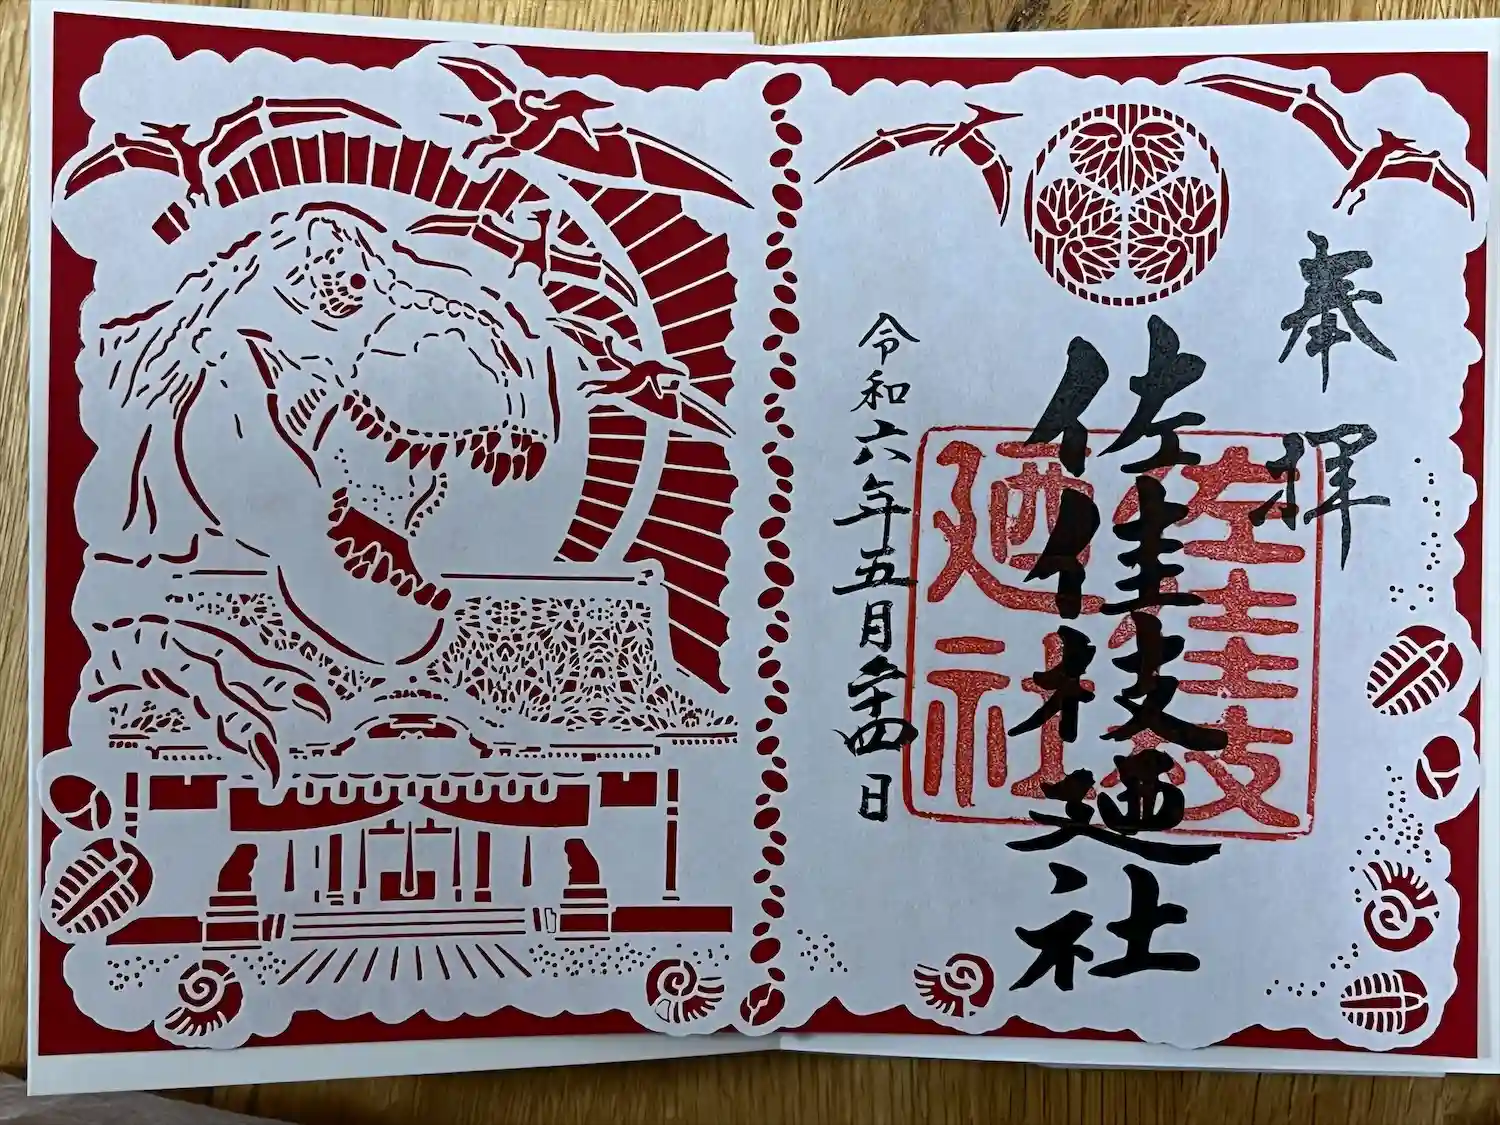 奉拝
佐佳枝廼社
佐佳枝
廼社
令和六年五月二十四日